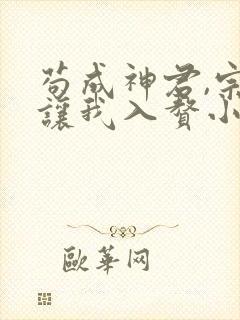 苟成神君,宗
讓我入贅小
歐華网